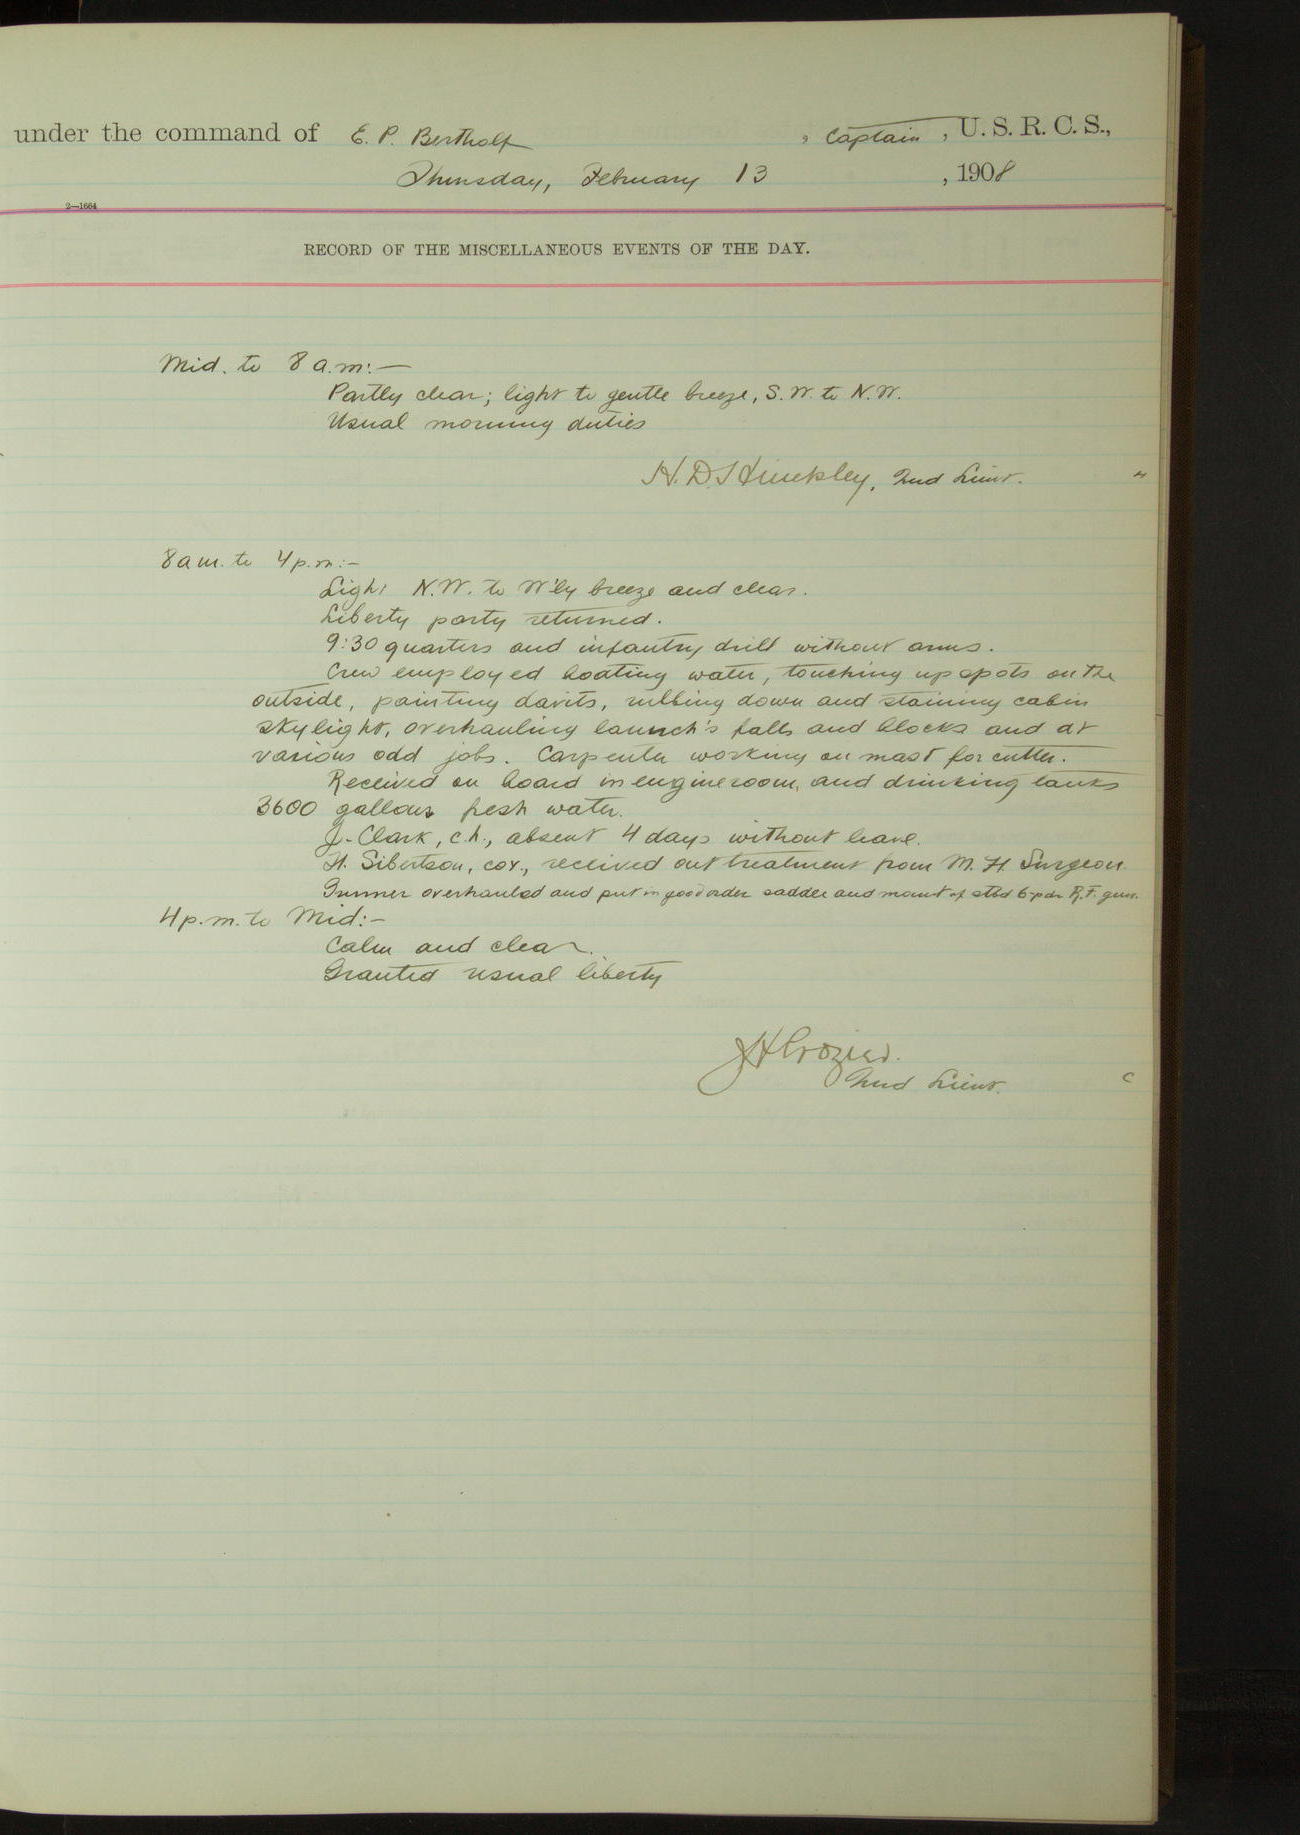 under the command of E. P. Bertholf, Captain, U. S. R. C. S.,
Thursday, February 13, 1908
2—1664
RECORD OF THE MISCELLANEOUS EVENTS OF THE DAY.
Mid. to 8 a.m:—
Partly clear; light to gentle breeze, S.W. to N.W.
Usual morning duties
H. D. Hinckley, 2nd Lieut.
8 a.m. to 4 p.m:—
Light N.W. to W'ly breeze and clear.
Liberty party returned.
9:30 quarters and infantry drill without arms.
Crew employed boating water, touching up spots on the
outside, painting davits, rubbing down and staining cabin
skylight, overhauling launch's falls and blocks and at
various odd jobs. Carpenter working on mast for cutter.
Received on board in engineroom, and drinking tanks
3600 gallons fresh water.
J. Clark, c.h., absent 4 days without leave.
H. Sibertson, cox., received out treatment from M. H. Surgeon.
Gunner overhauled and put in good order saddle and mount of stbd 6-pdr R.F. gun.
4 p.m. to Mid:—
Calm and clear.
Granted usual liberty
J H Crozier.
2nd Lieut.